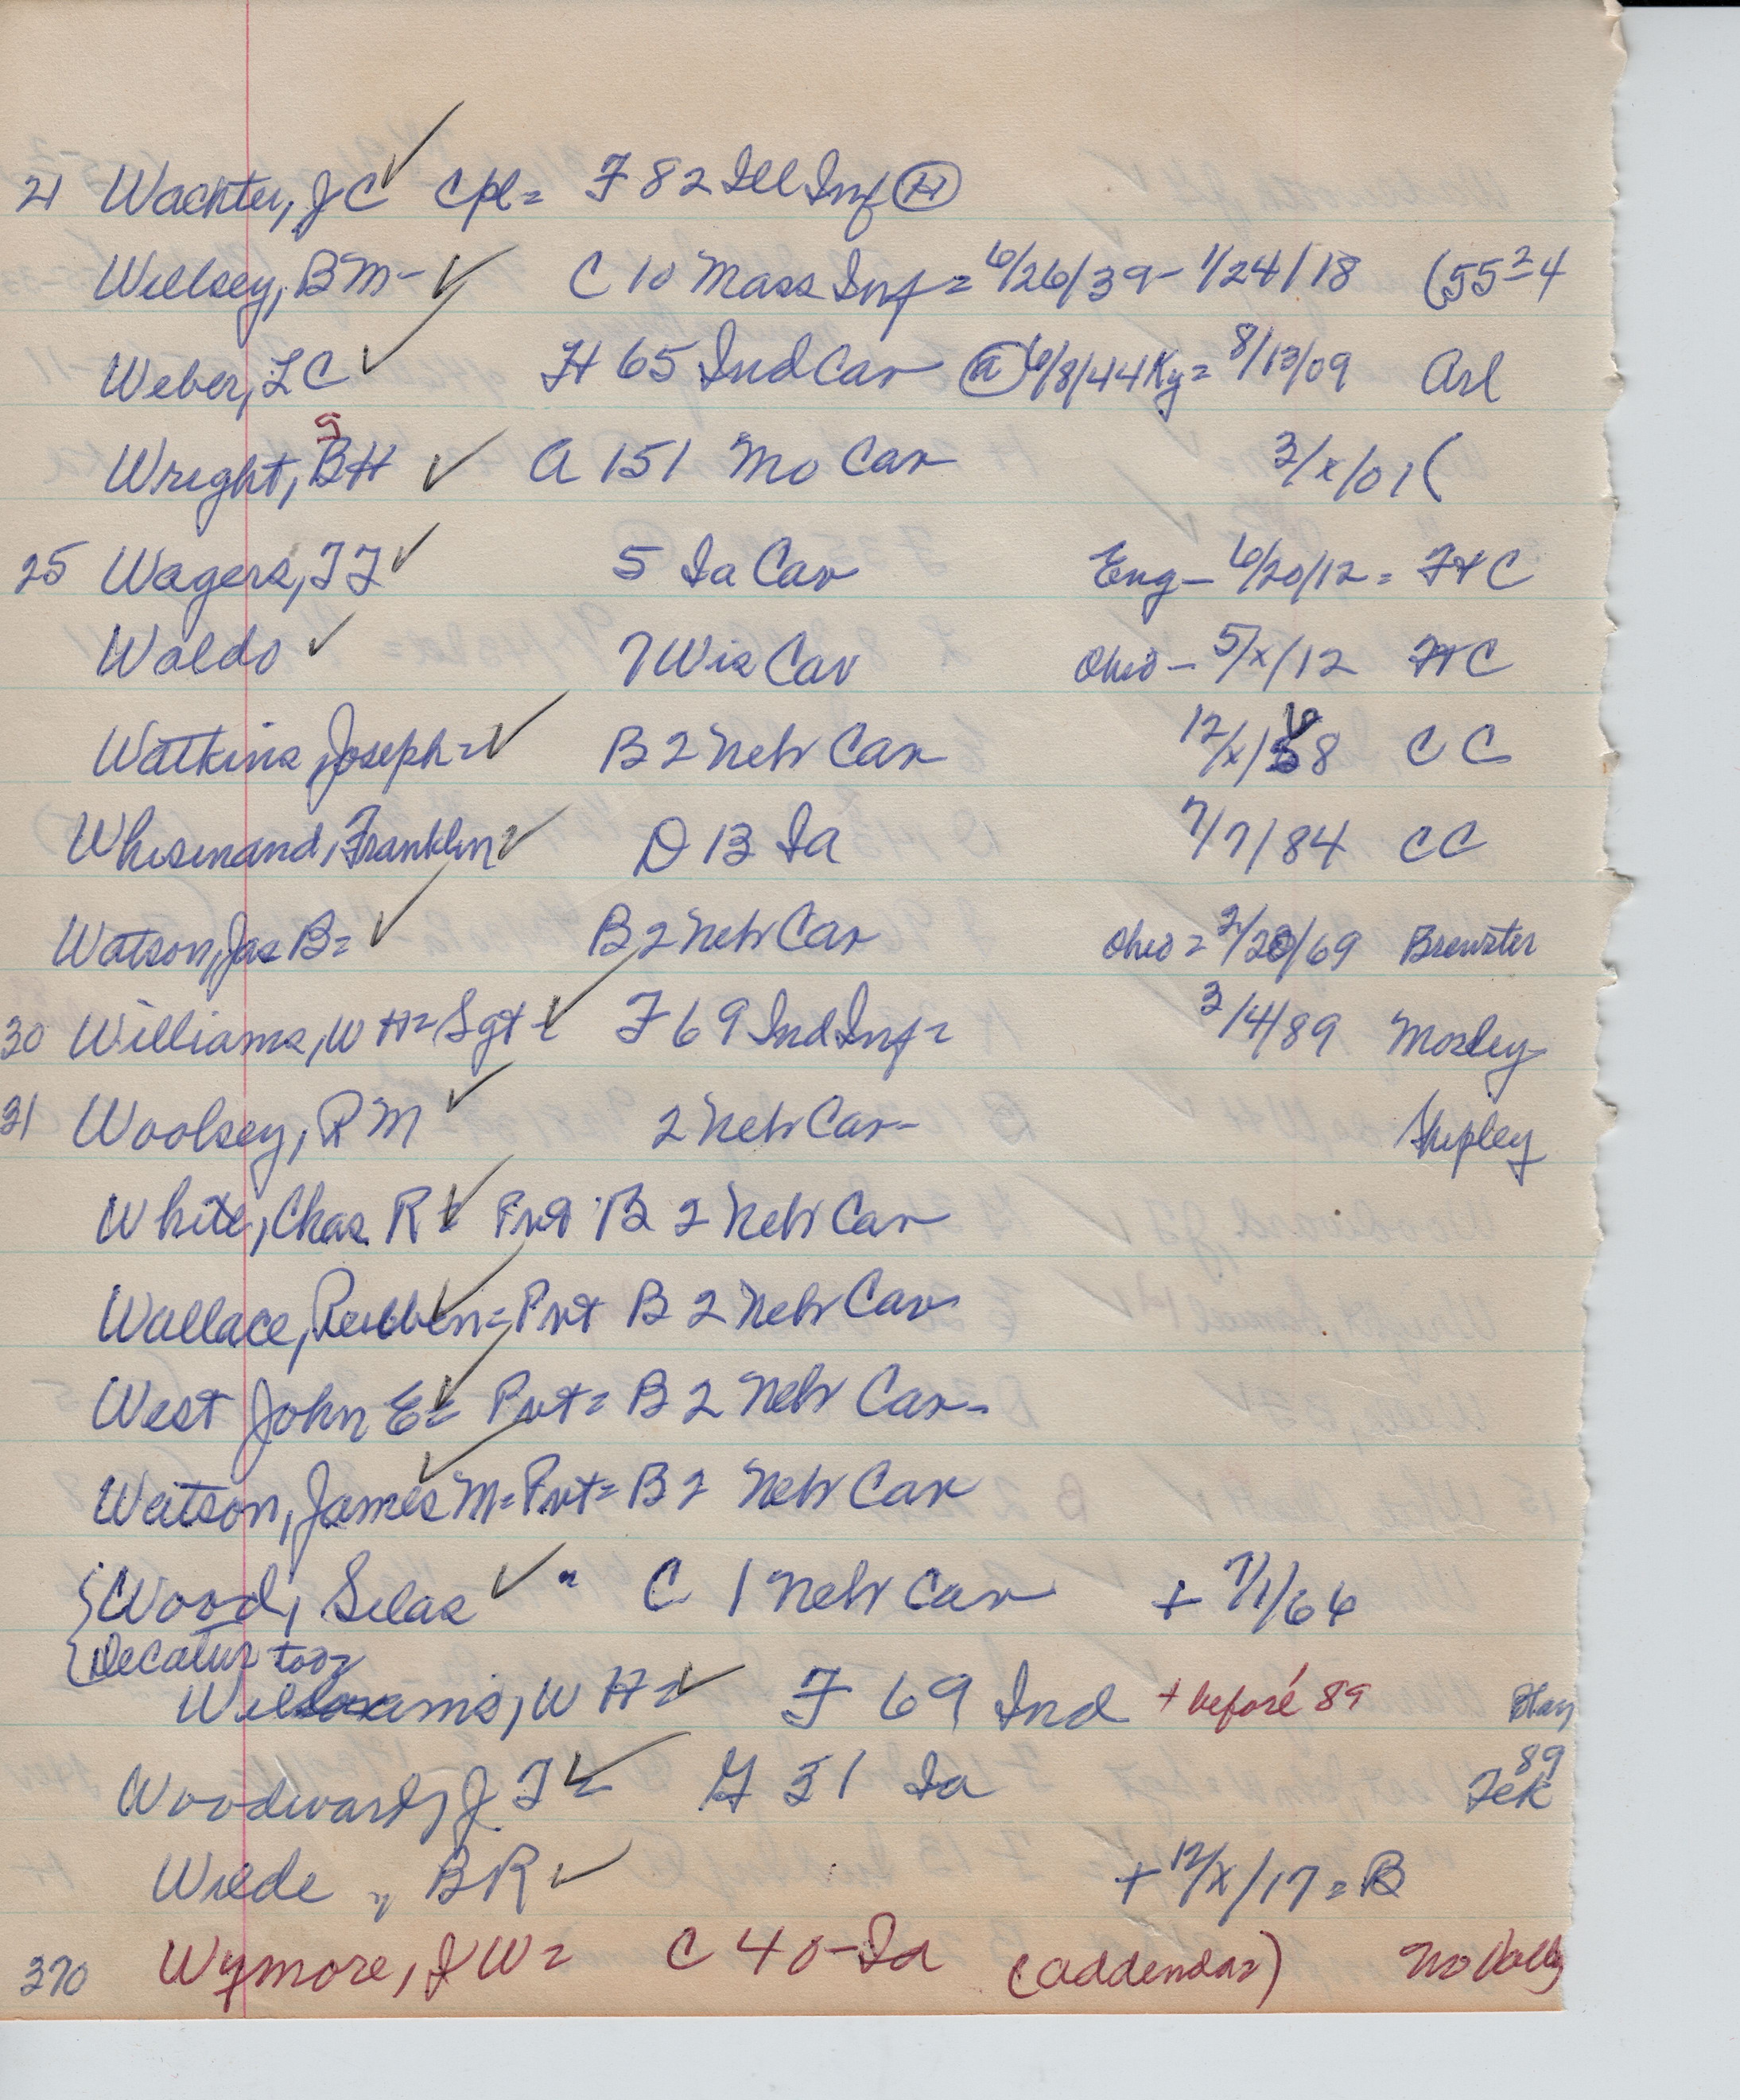 21 Wachter, J C ✓ Cpl = F 82 Ill Inf (H)
Willsey, B M - ✓ C 10 Mass Inf = 6/26/39 - 1/24/18 (55-4
Weber, L C ✓ H 65 Ind Cav (a) 6/8/44 Ky = 8/13/09 Arl
Wright, B H ✓ A 151 Mo Cav 3/x/01 (
25 Wagers, T J ✓ 5 Ia Cav Eng - 6/20/12 = FHC
Waldo ✓ 7 Wis Cav Ohio - 5/x/12 FHC
Watkins, Joseph = ✓ B 2 Neb Cav 12/x/68 C C
Whisenand, Franklin ✓ D 13 Ia 7/7/84 CC
Watson, Jas B = ✓ B 2 Neb Cav Ohio = 2/20/69 Brewster
30 Williams, W H = Sgt = ✓ F 69 Ind Inf = 3/4/89 Mosley
31 Woolsey, R M ✓ 2 Neb Cav - Shipley
White, Chas. R = ✓ Pvt B 2 Neb Cav
Wallace, Reubben = Pvt B 2 Neb Cav
West John E = ✓ Pvt = B 2 Neb Cav -
Watson, James M = Pvt = B 2 Neb Cav
{Wood, Silas ✓ " C 1 Neb Cav + 7/1/64
{Decatur too =
Williams, W H = ✓ F 69 Ind + before 89
Woodward, J. T = ✓ G 31 Ia 89 Tek
Wilde, B R ✓ + 12/x/17 = B
370 Wymore, J W = C 40 - Ia (addenda =) No Valley